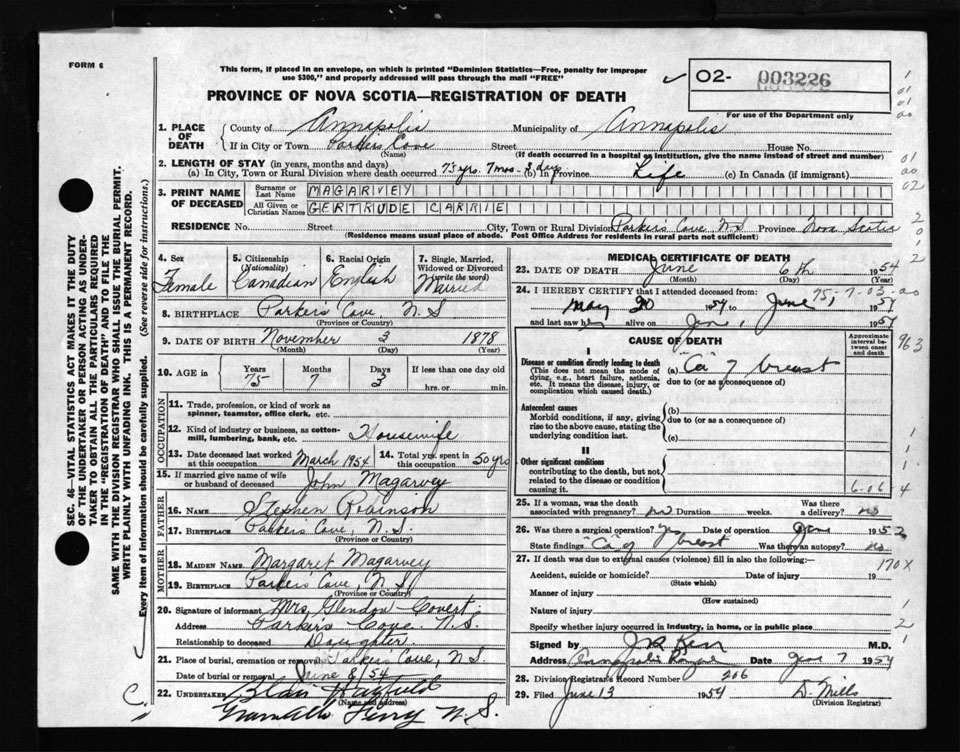 FORM 6
This form, if placed in an envelope, on which is printed "Dominion Statistics—Free, penalty for improper
use $300," and properly addressed will pass through the mail "FREE"
PROVINCE OF NOVA SCOTIA—REGISTRATION OF DEATH
02- 003226
For use of the Department only
1. PLACE OF DEATH
County of Annapolis Municipality of Annapolis
If in City or Town Parkers Cove Street House No.
(Name) (If death occurred in a hospital or institution, give the name instead of street and number)
2. LENGTH OF STAY (in years, months and days)
(a) In City, Town or Rural Division where death occurred 75 yrs. 7 mos. 3 day (b) In Province Life (c) In Canada (if immigrant)
3. PRINT NAME OF DECEASED
Surname or Last Name MAGARVEY
All Given or Christian Names GERTRUDE CARRIE
RESIDENCE No. Street City, Town or Rural Division Parkers Cove N.S Province Nova Scotia
(Residence means usual place of abode. Post Office Address for residents in rural parts not sufficient)
4. Sex Female
5. Citizenship (Nationality) Canadian
6. Racial Origin English
7. Single, Married, Widowed or Divorced (write the word) Married
8. BIRTHPLACE Parkers Cove, N.S
(Province or Country)
9. DATE OF BIRTH November 3 1878
(Month) (Day) (Year)
10. AGE in Years 75 Months 7 Days 3 If less than one day old hrs. or min.
OCCUPATION
11. Trade, profession, or kind of work as spinner, teamster, office clerk, etc.
12. Kind of industry or business, as cotton-mill, lumbering, bank, etc. Housewife
13. Date deceased last worked at this occupation March 1954
14. Total yrs. spent in this occupation 50 yrs
15. If married give name of wife or husband of deceased John Magarvey
FATHER
16. Name Stephen Robinson
17. Birthplace Parkers Cove, N.S.
(Province or Country)
MOTHER
18. Maiden Name Margaret Magarvey
19. Birthplace Parkers Cove, N.S
(Province or Country)
20. Signature of informant Mrs Glendon Covert
Address Parkers Cove N.S.
Relationship to deceased Daughter
21. Place of burial, cremation or removal Parkers Cove, N.S.
Date of burial or removal June 8/54
22. UNDERTAKER Blair
(Name and address)
Ferry N.S.
MEDICAL CERTIFICATE OF DEATH
23. DATE OF DEATH June 6th 1954
(Month) (Day) (Year)
24. I HEREBY CERTIFY that I attended deceased from:
May 20 1954 to June 1, 1954
75-7-03-00
and last saw h alive on June 1 1954
CAUSE OF DEATH
Approximate interval between onset and death
963
I
Disease or condition directly leading to death
(This does not mean the mode of dying, e.g., heart failure, asthenia, etc. It means the disease, injury, or complication which caused death.)
(a) "Ca" of breast
due to (or as a consequence of)
Antecedent causes
Morbid conditions, if any, giving rise to the above cause, stating the underlying condition last.
(b)
due to (or as a consequence of)
(c)
II
Other significant conditions contributing to the death, but not related to the disease or condition causing it.
6-06
25. If a woman, was the death associated with pregnancy? no Duration weeks. Was there a delivery? no
26. Was there a surgical operation? Date of operation 1952
State findings "Ca" of breast Was there an autopsy? no
27. If death was due to external causes (violence) fill in also the following:
170X
Accident, suicide or homicide? Date of injury 19
(State which)
Manner of injury
(How sustained)
Nature of injury
Specify whether injury occurred in industry, in home, or in public place
Signed by M.D.
Address Annapolis Royal Date June 7 1954
28. Division Registrar's Record Number 206
29. Filed June 13 1954 D. Mills
(Division Registrar)
SEC. 46—VITAL STATISTICS ACT MAKES IT THE DUTY
OF THE UNDERTAKER OR PERSON ACTING AS UNDER-
TAKER TO OBTAIN ALL THE PARTICULARS REQUIRED
IN THE "REGISTRATION OF DEATH" AND TO FILE THE
SAME WITH THE DIVISION REGISTRAR WHO SHALL ISSUE THE BURIAL PERMIT.
WRITE PLAINLY WITH UNFADING INK. THIS IS A PERMANENT RECORD.
Every item of information should be carefully supplied. (See reverse side for instructions.)